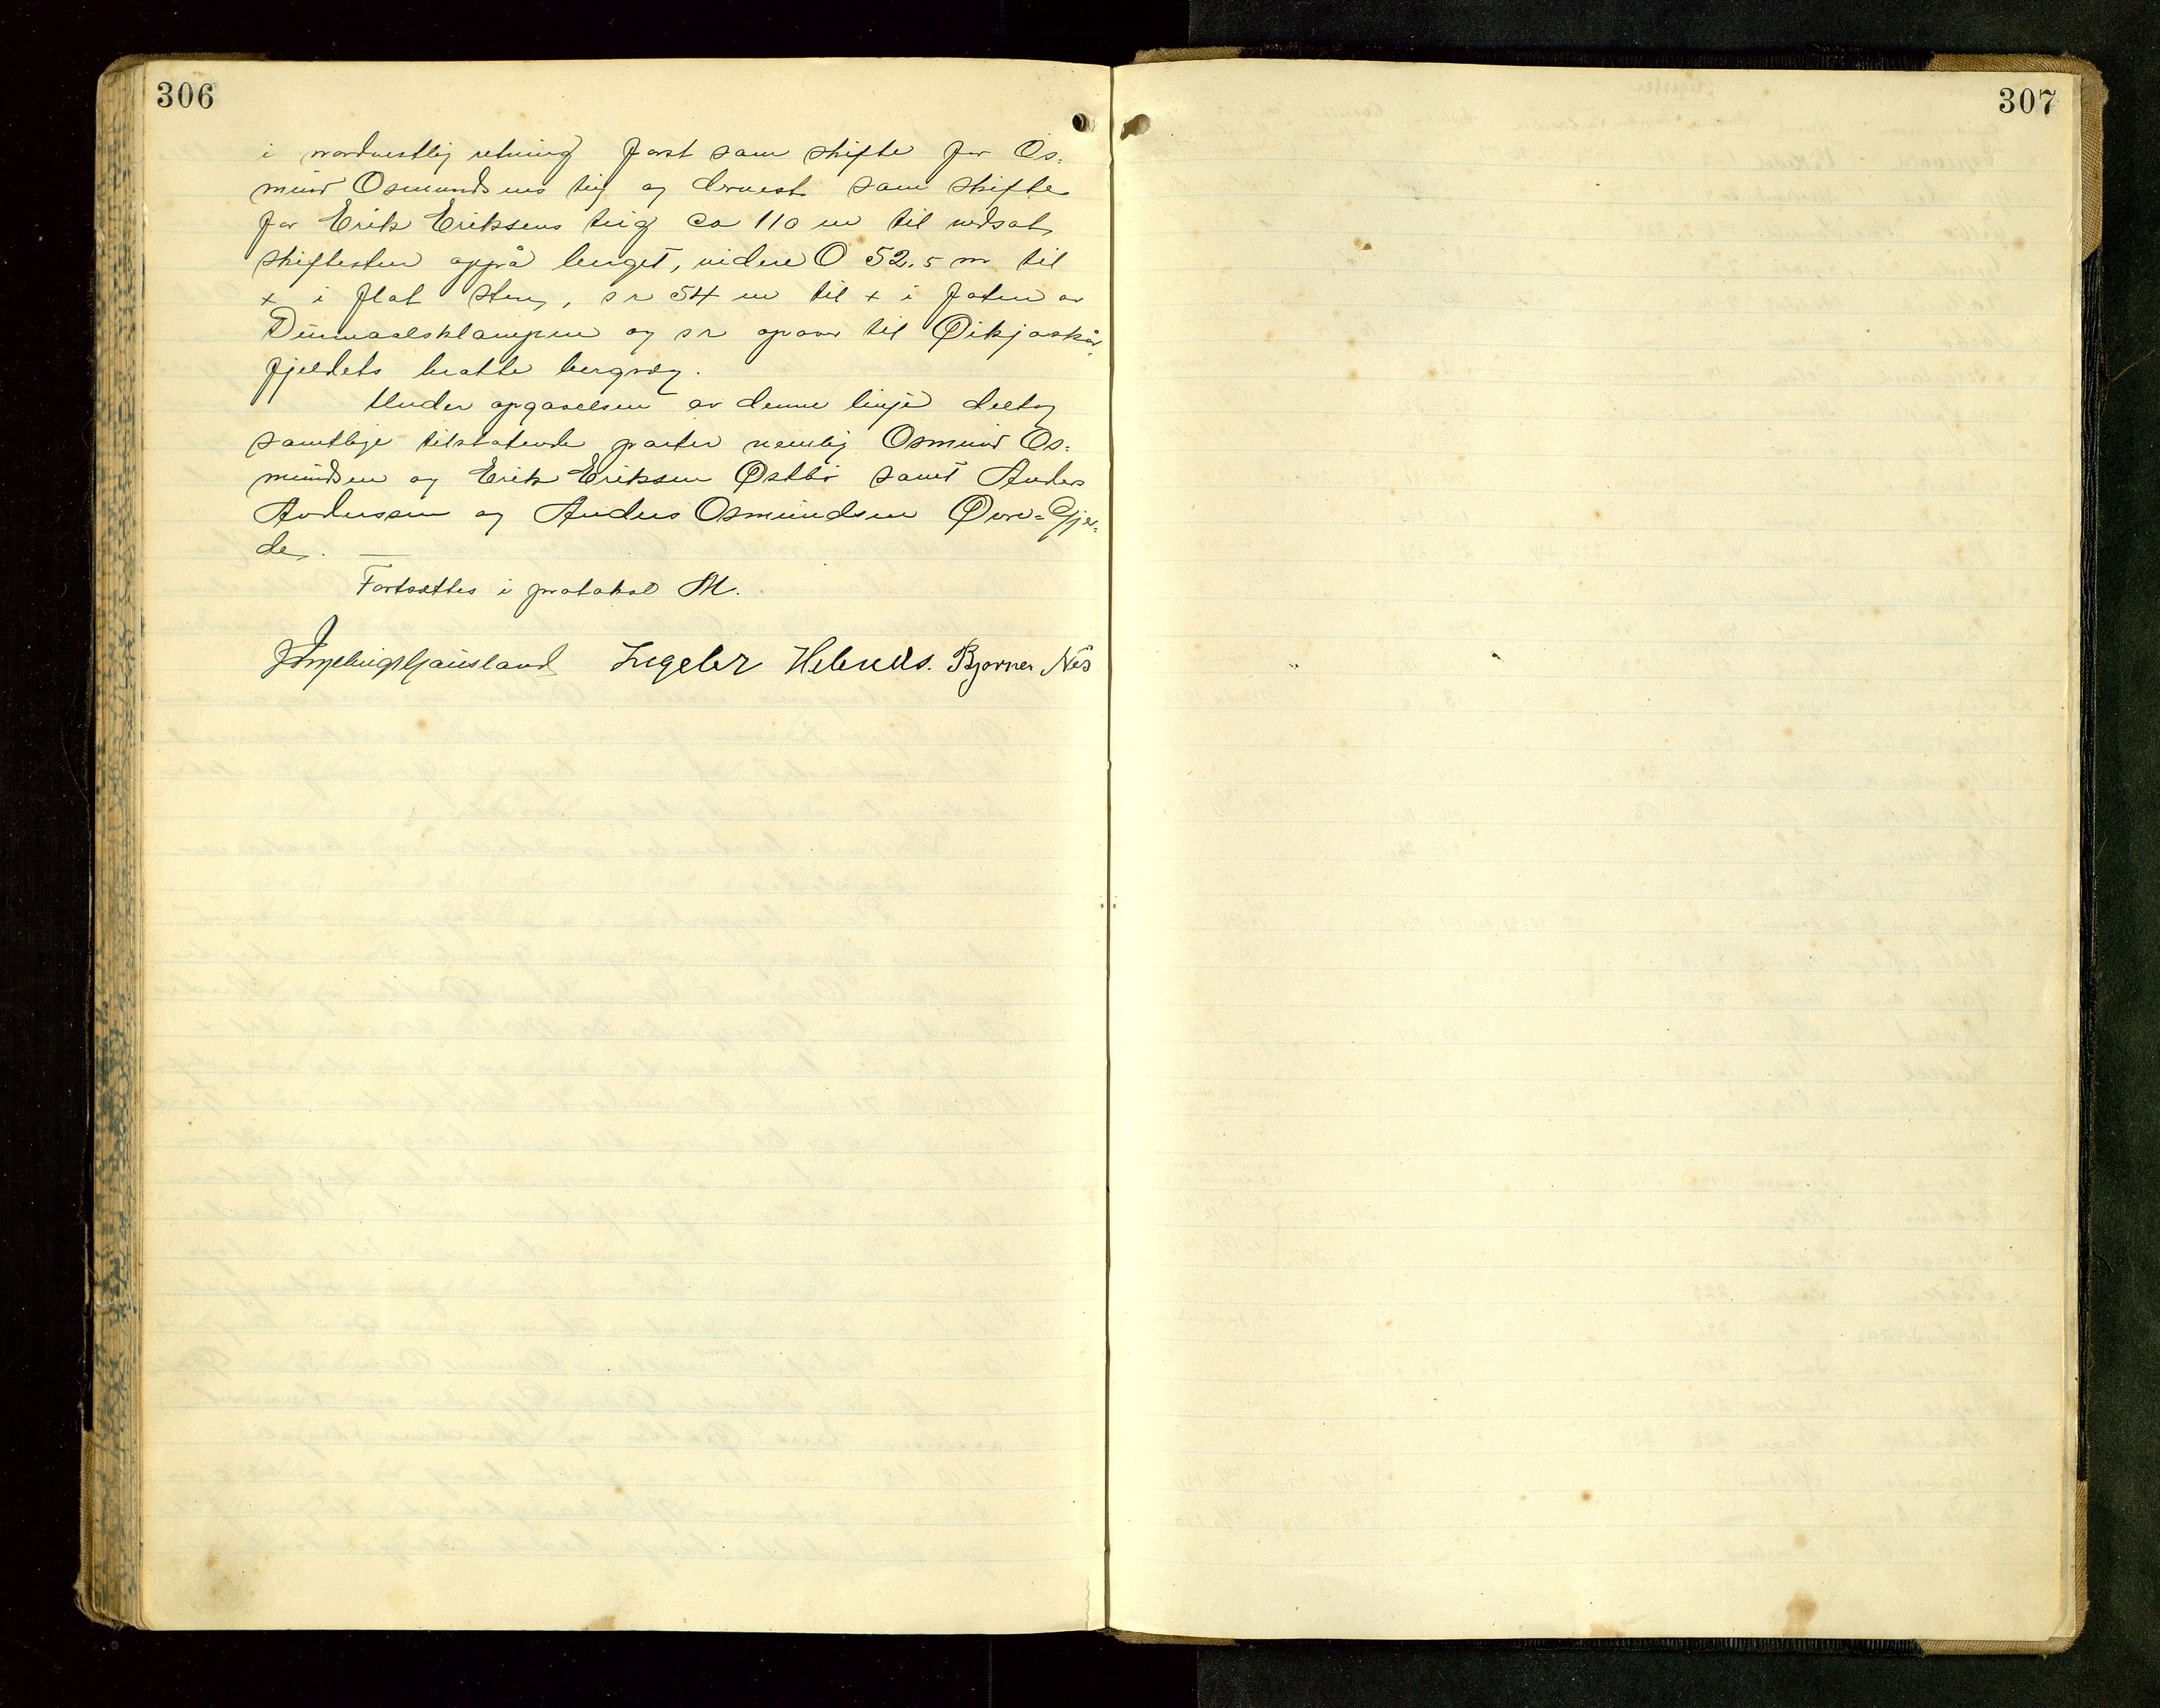 306
i nordvestlig retning først som skifte for Os=
mund Osmundsens teig og dernest som skifte
for Erik Eriksens teig ca 110 m til nedsat
skiftesten oppå berget, videre O 52.5 m til
+ i flat sten, s r 54 m til + i foten av
Dunmaalsklampen og s r opover til Øikjaskår
fjeldets bratte bergveg.
Under opgaaelsen av denne linje deltog
samtlige tilstøtende parter nemlig Osmund Os=
mundsen og Erik Eriksen Østbø samt Anders
Andersen og Anders Osmundsen Øvre=Gjer=
de. —
Fortsættes i protokol M.
Ingeber Helveds. Bjarne Nes
307